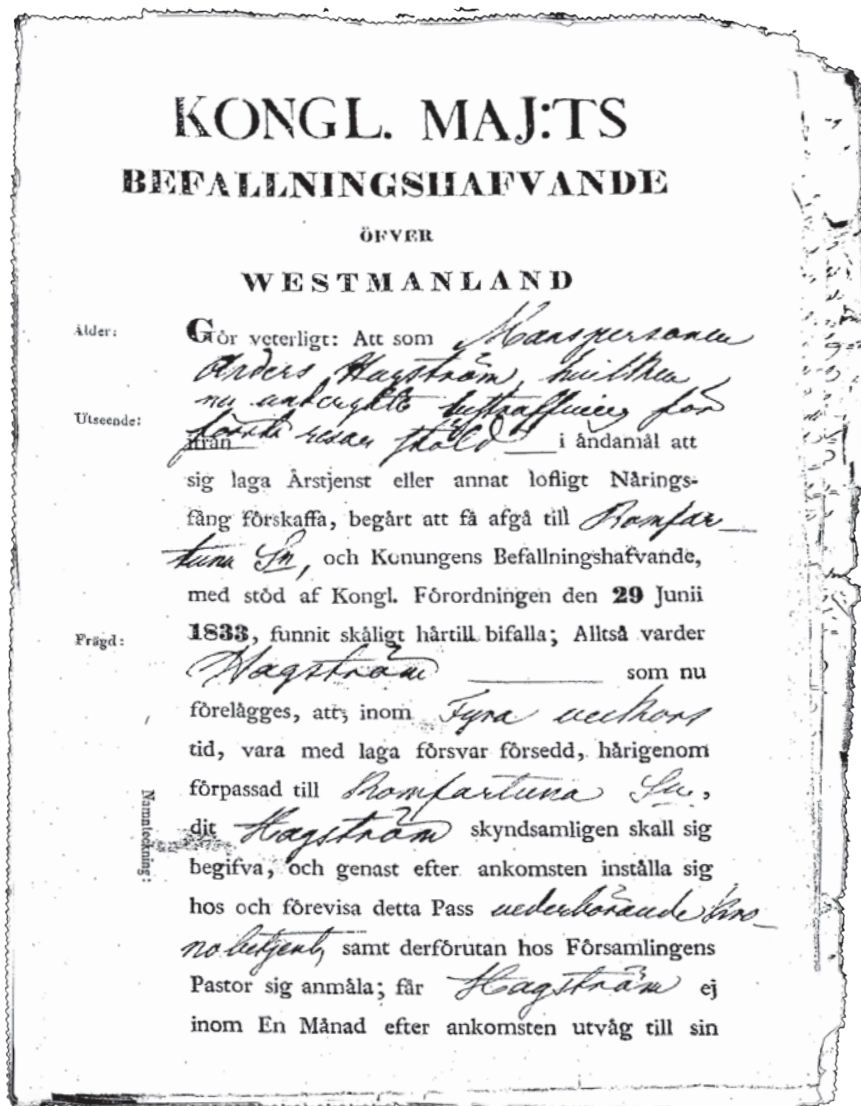 KONGL. MAJ:TS
BEFALLNINGSHAFVANDE
ÖFVER
WESTMANLAND
Ålder:
Gör veterligt: Att som Manspersonen
Anders Hagström, hvilken
nu undergått bestraffning för
Utseende:
första resan stöld
ifrån i åndamål att
sig laga Årstjenst eller annat lofligt Nårings-
fång fôrskaffa, begårt att få afgå till Romfar-
tuna Sn, och Konungens Befallningshafvande,
med stôd af Kongl. Fôrordningen den 29 Junii
Frägd:
1833, funnit skåligt hårtill bifalla; Alltså varder
Hagström som nu
fôrelågges, att, inom Fyra veckors
tid, vara med laga fôrsvar fôrsedd, hårigenom
fôrpassad till Romfartuna Sn,
Namnteckning:
dit Hagström skyndsamligen skall sig
begifva, och genast efter ankomsten instålla sig
hos och fôrevisa detta Pass vederbörande Kro-
nobetjent, samt derfôrutan hos Fôrsamlingens
Pastor sig anmåla; får Hagström ej
inom En Månad efter ankomsten utvåg till sin